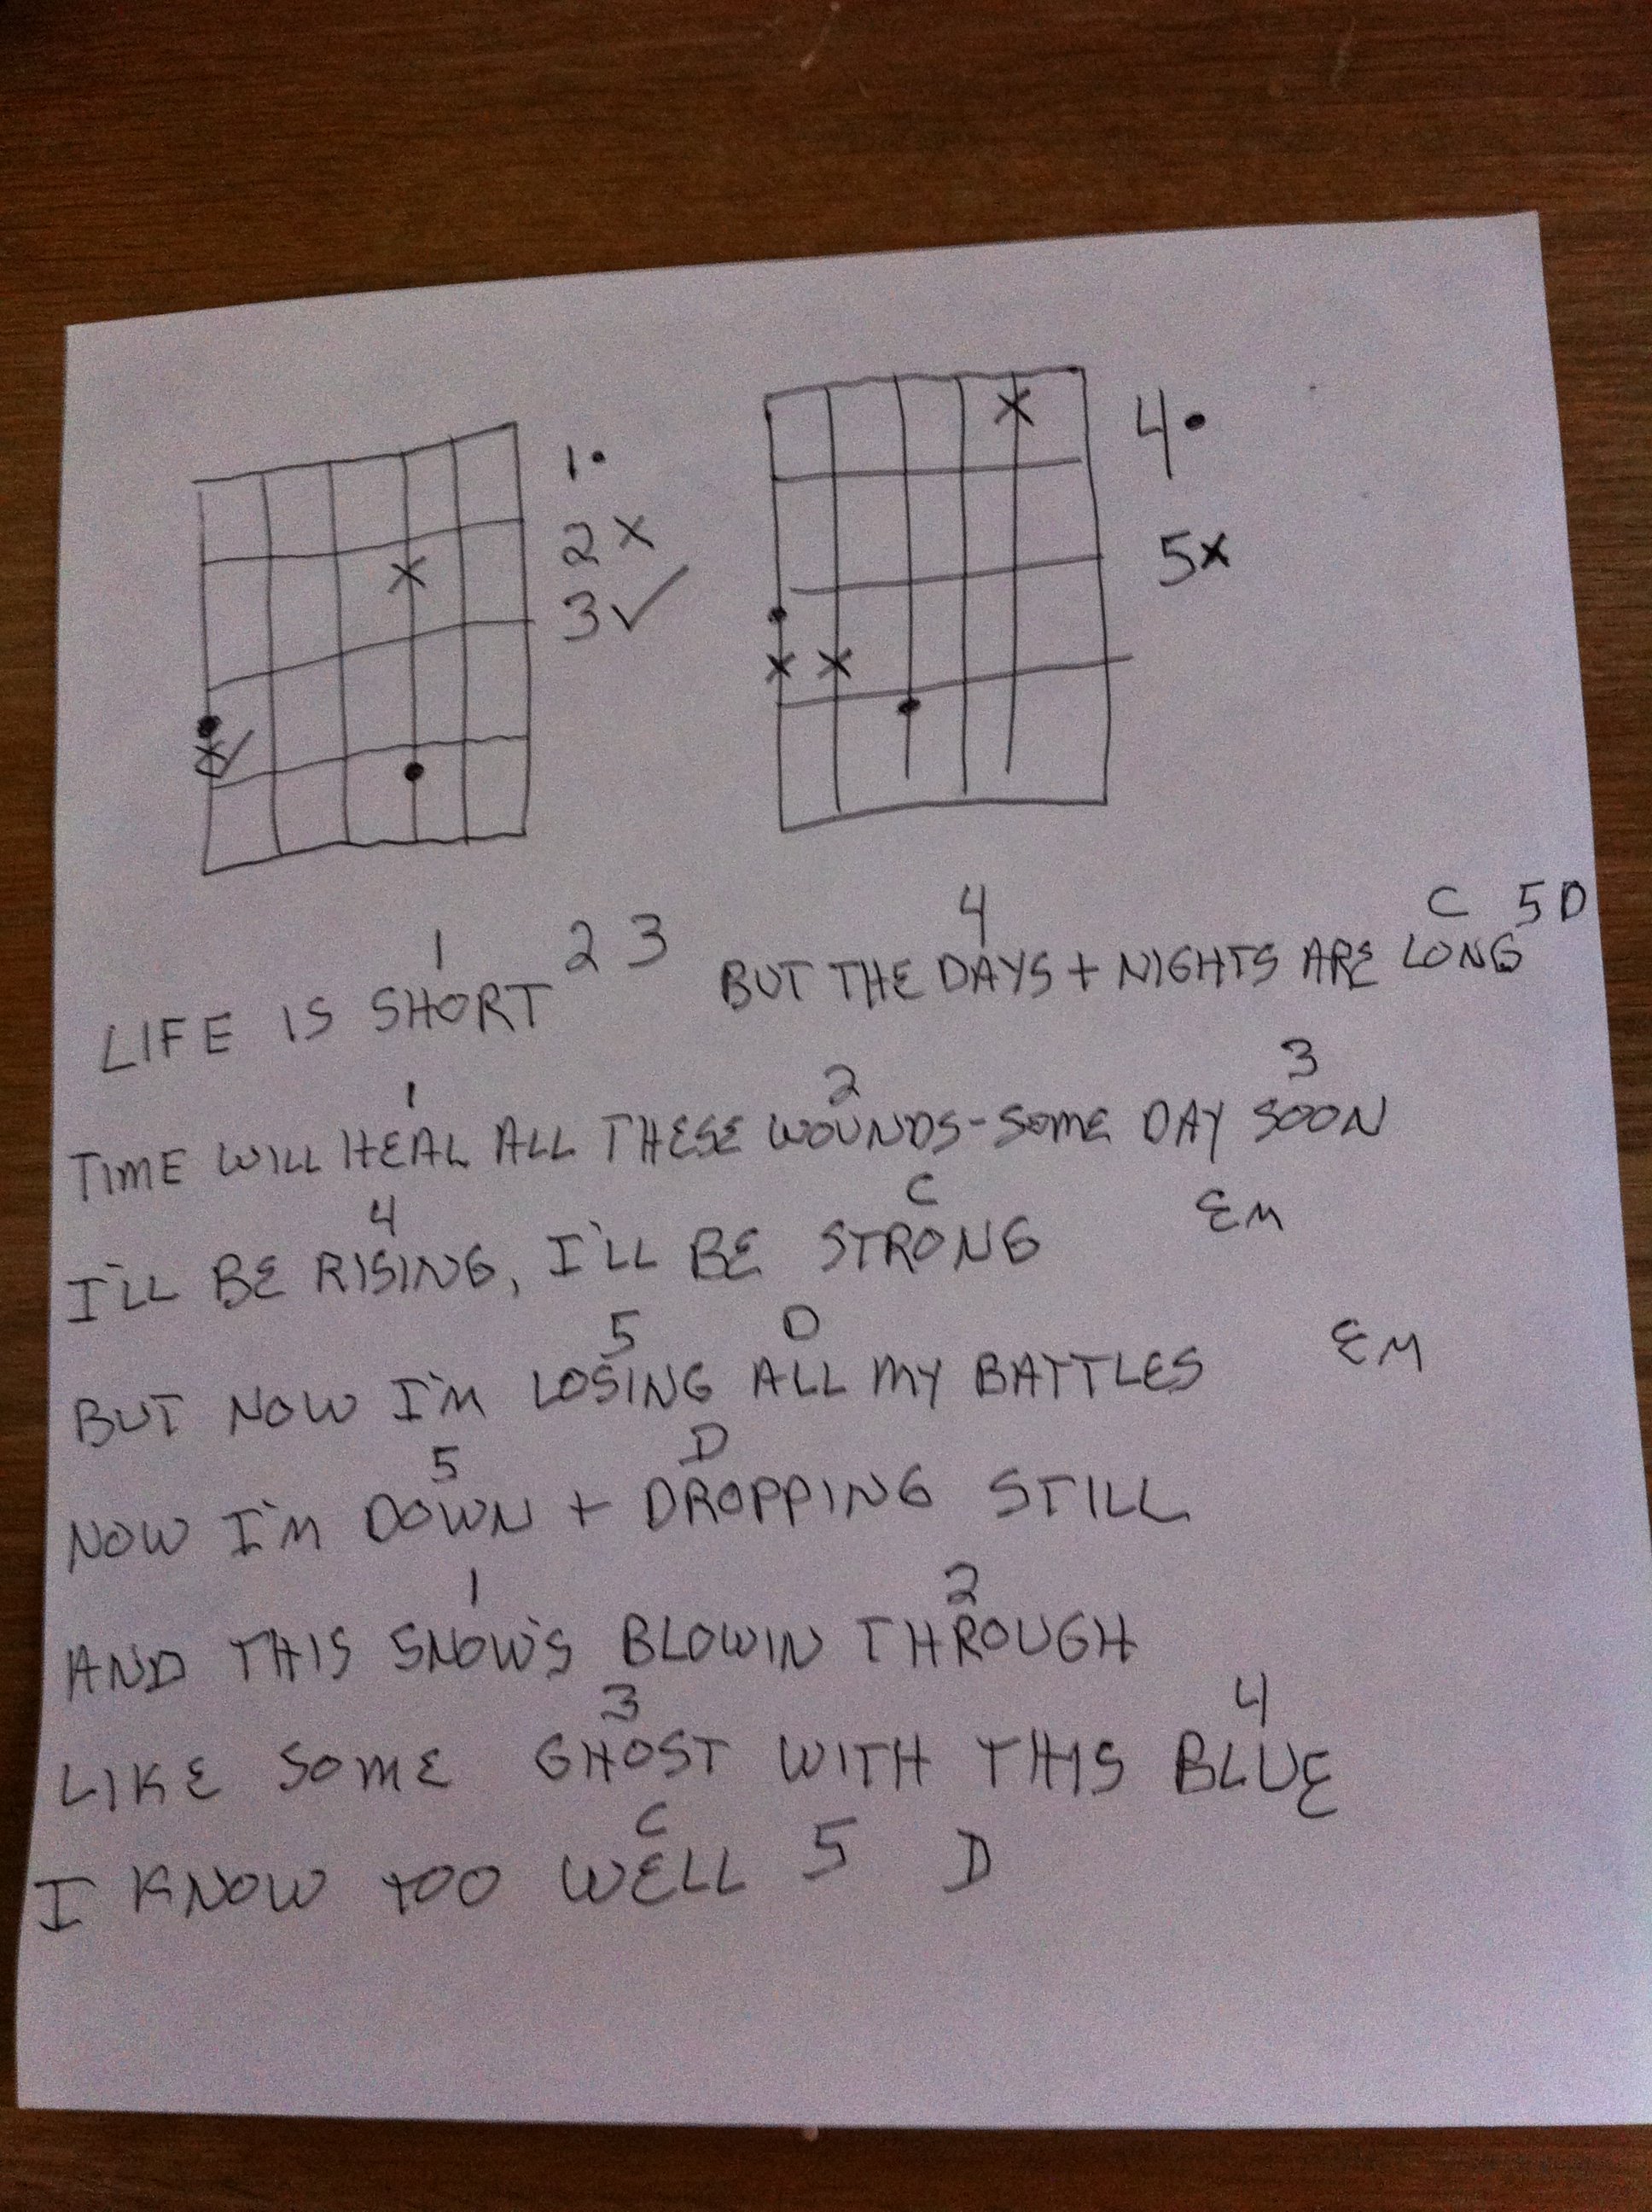 1•
2 X
3 ✓
4•
5x
1 2 3 4 C 5 D
LIFE IS SHORT BUT THE DAYS + NIGHTS ARE LONG
1 2 3
TIME WILL HEAL ALL THESE WOUNDS - SOME DAY SOON
4 C EM
I'LL BE RISING, I'LL BE STRONG
5 D EM
BUT NOW I'M LOSING ALL MY BATTLES
5 D
NOW I'M DOWN + DROPPING STILL
1 2
AND THIS SNOW'S BLOWIN THROUGH
3 4
LIKE SOME GHOST WITH THIS BLUE
C
I KNOW TOO WELL 5 D